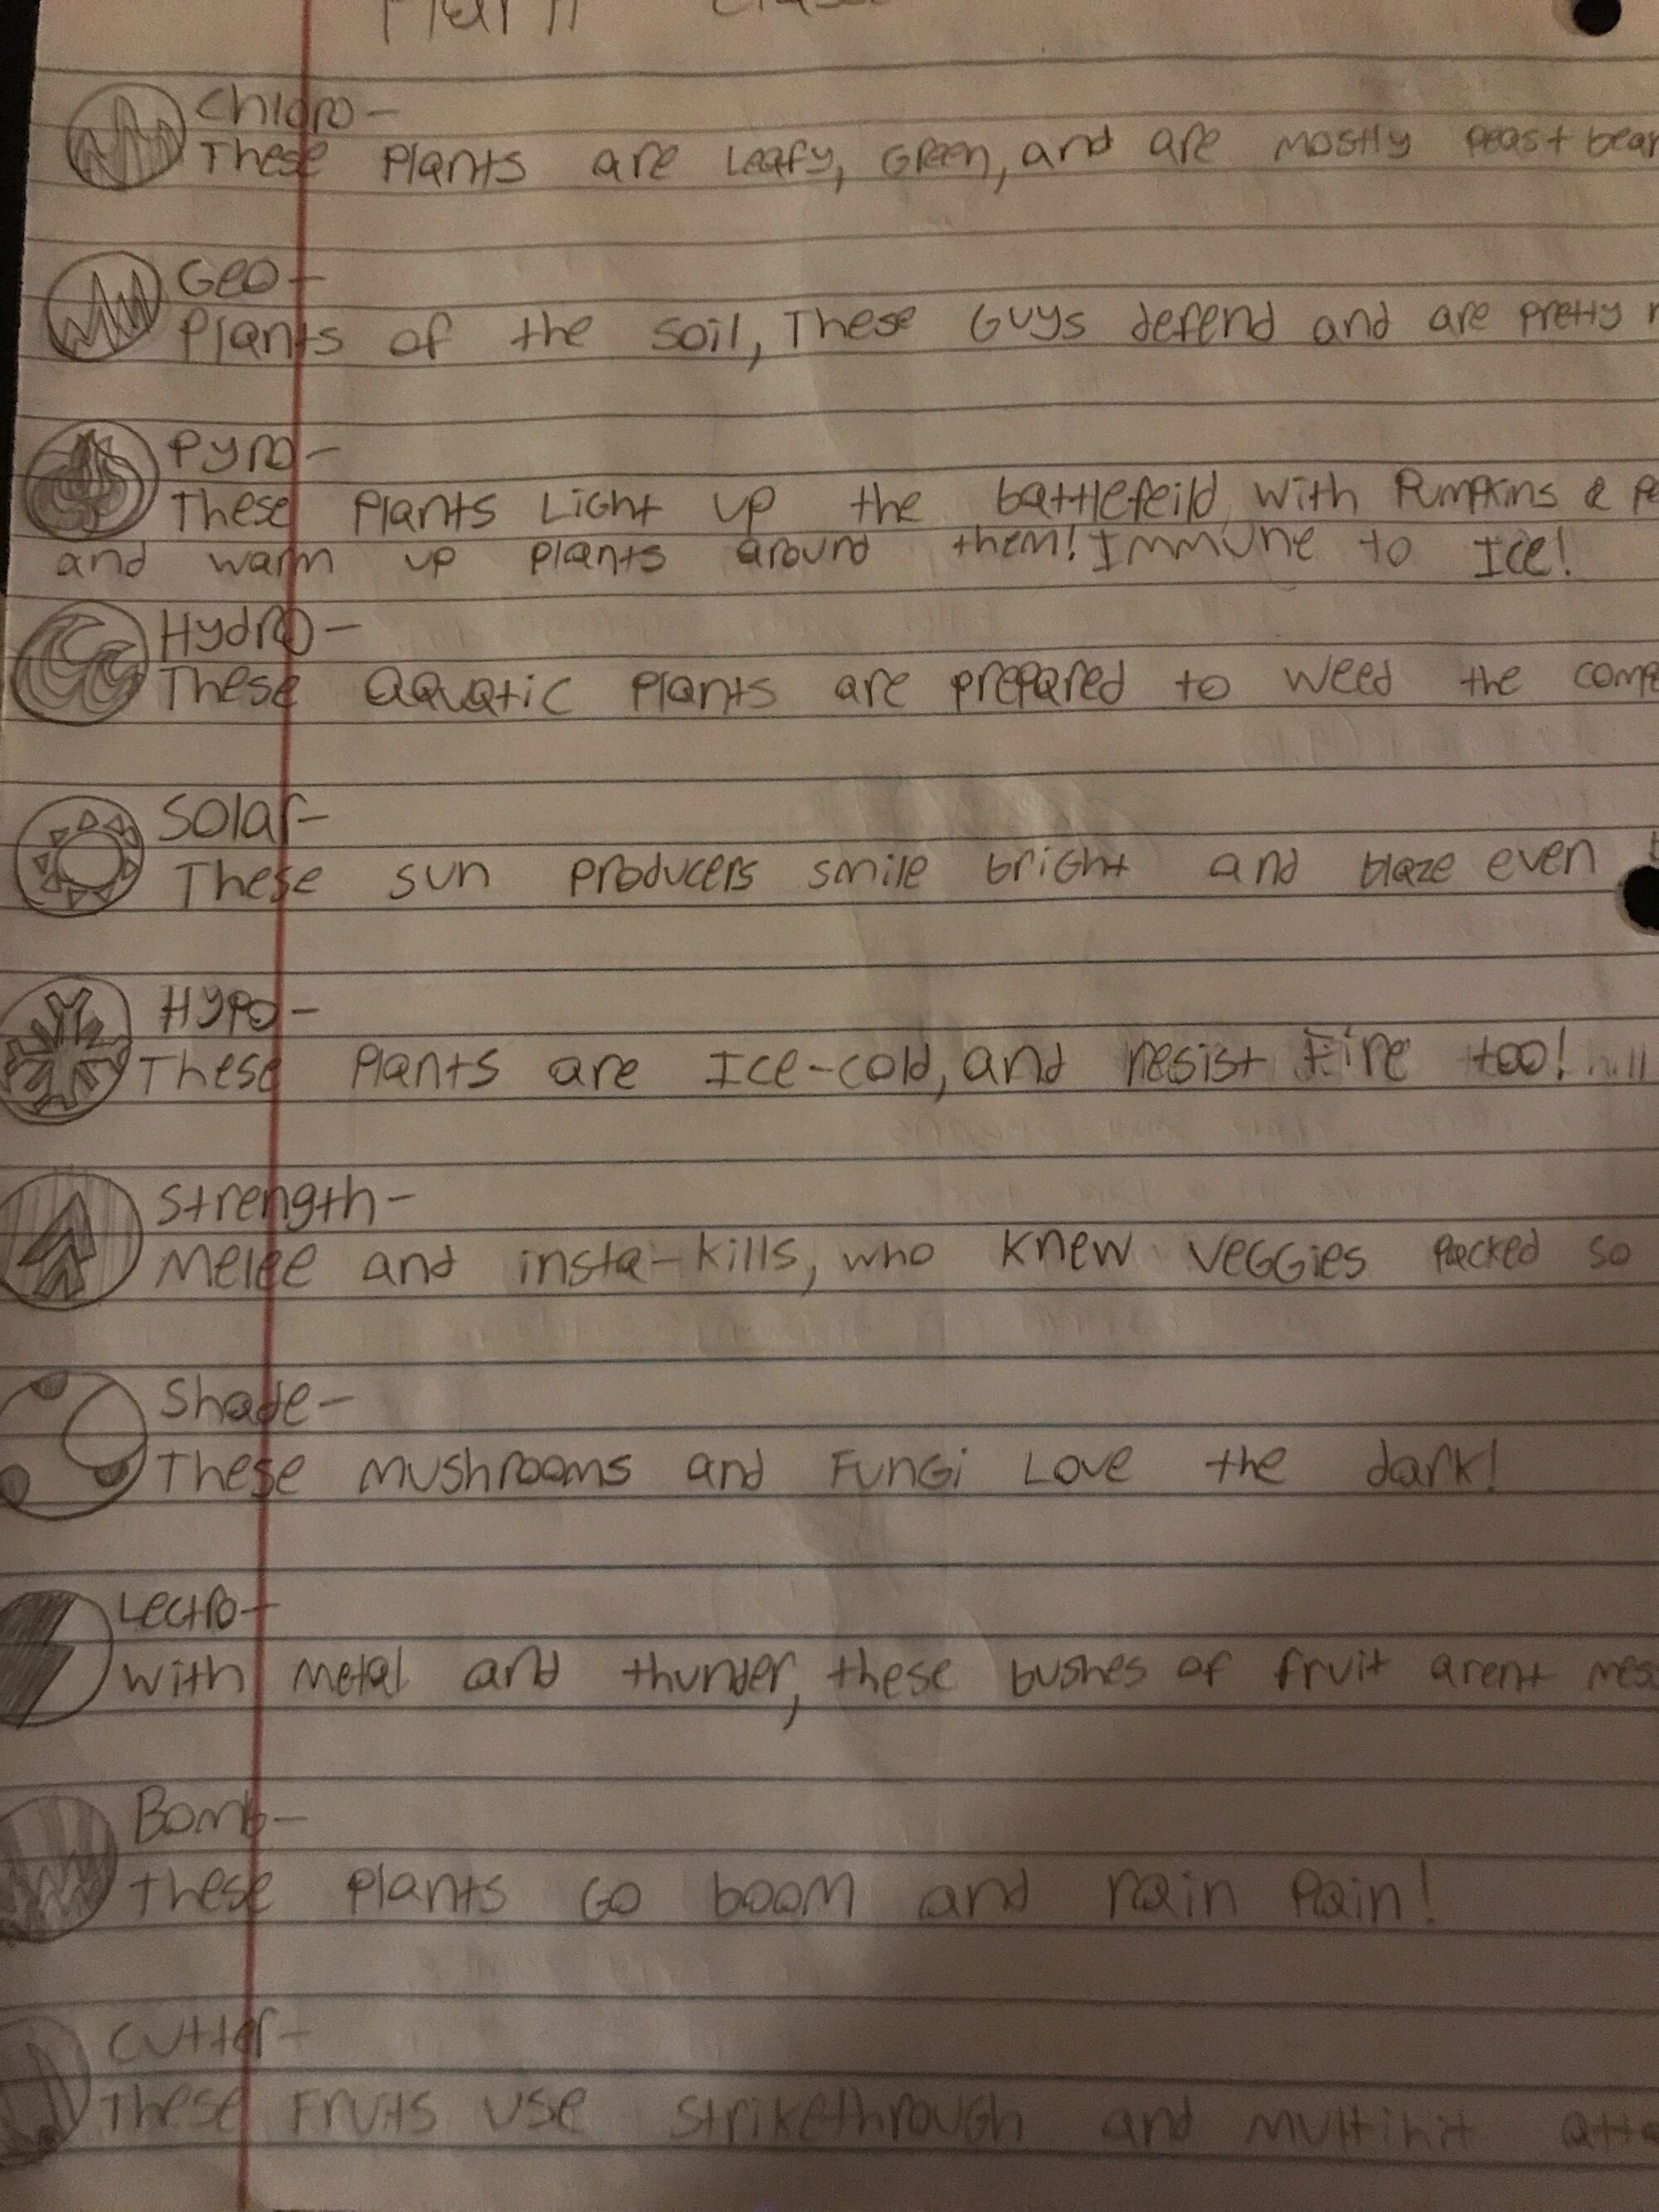 Plant
Chloro-
These Plants are Leafy, Green, and are mostly peas +
Geo-
Plants of the soil, These Guys defend and are pretty
Pyro-
These Plants Light up the battlefeild with Pumpkins &
and warm up plants around them! Immune to Ice!
Hydro-
These aquatic plants are prepared to weed the
Solar-
These sun producers smile bright and blaze even
Hypo-
These Plants are Ice-cold, and resist Fire too!
Strength-
Melee and insta-kills, who knew veggies packed so
Shade-
These mushrooms and Fungi Love the dark!
Lectro-
With metal and thunder, these bushes of fruit arent
Bomb-
these plants Go boom and rain Pain!
Cutter-
These Fruits use strikethrough and multihit